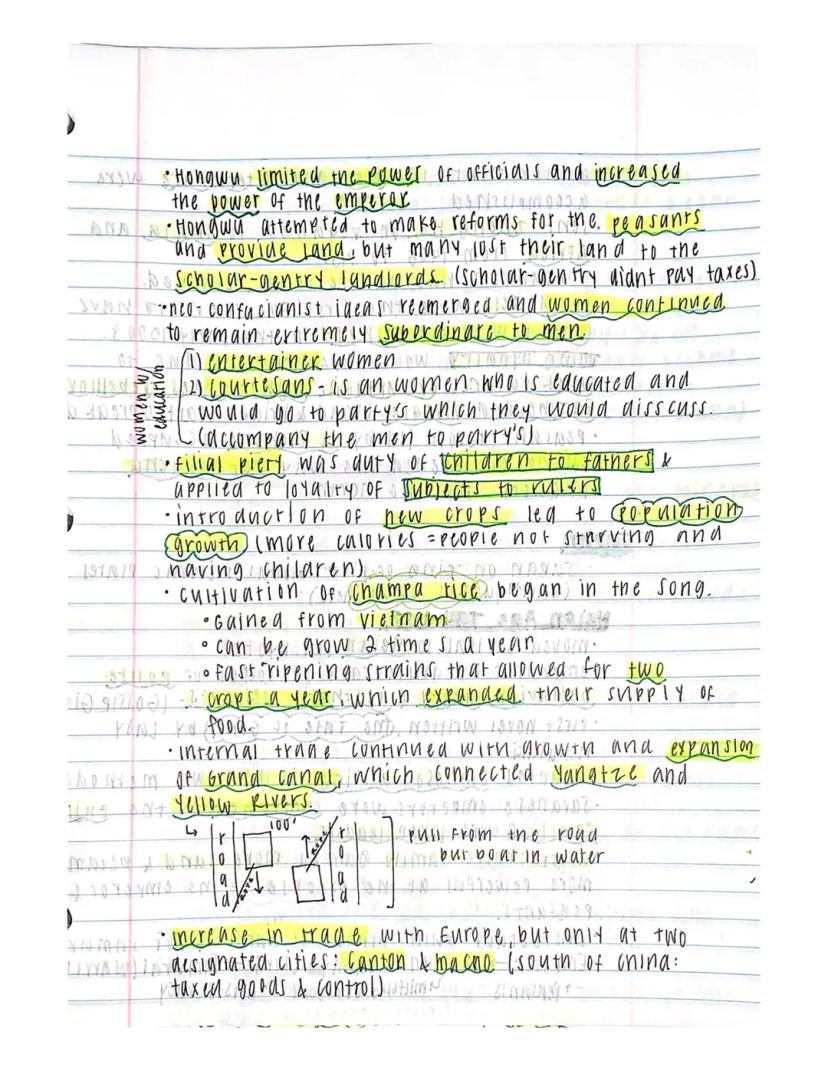 • Hongwu limited the power of officials and increased
the power of the emperor
• Hongwu attempted to make reforms for the peasants
and provide land, but many lost their land to the
scholar-gentry landlords. (scholar-gentry didnt pay taxes)
• neo-confucianist ideas reemerged and women continued
to remain extremely subordinate to men.
women w/
education
1) entertainer women
2) courtesans - is an women who is educated and
would go to party's which they would disscuss.
(accompany the men to party's)
• filial piety was duty of children to fathers &
applied to loyalty of subjects to rulers
• introduction of new crops led to population
growth (more calories = people not starving and
having children)
• cultivation of champa rice began in the song.
• Gained from vietnam
• can be grow 2 times a year
• fast ripening strains that allowed for two
crops a year which expanded their supply of
food.
• internal trade continued with growth and expansion
of Grand canal, which connected Yangtze and
Yellow Rivers.
100'
road
road
Pull from the road
but boat in water
• increase in trade with Europe, but only at two
designated cities: Canton & macao (south of china:
taxed goods & control)